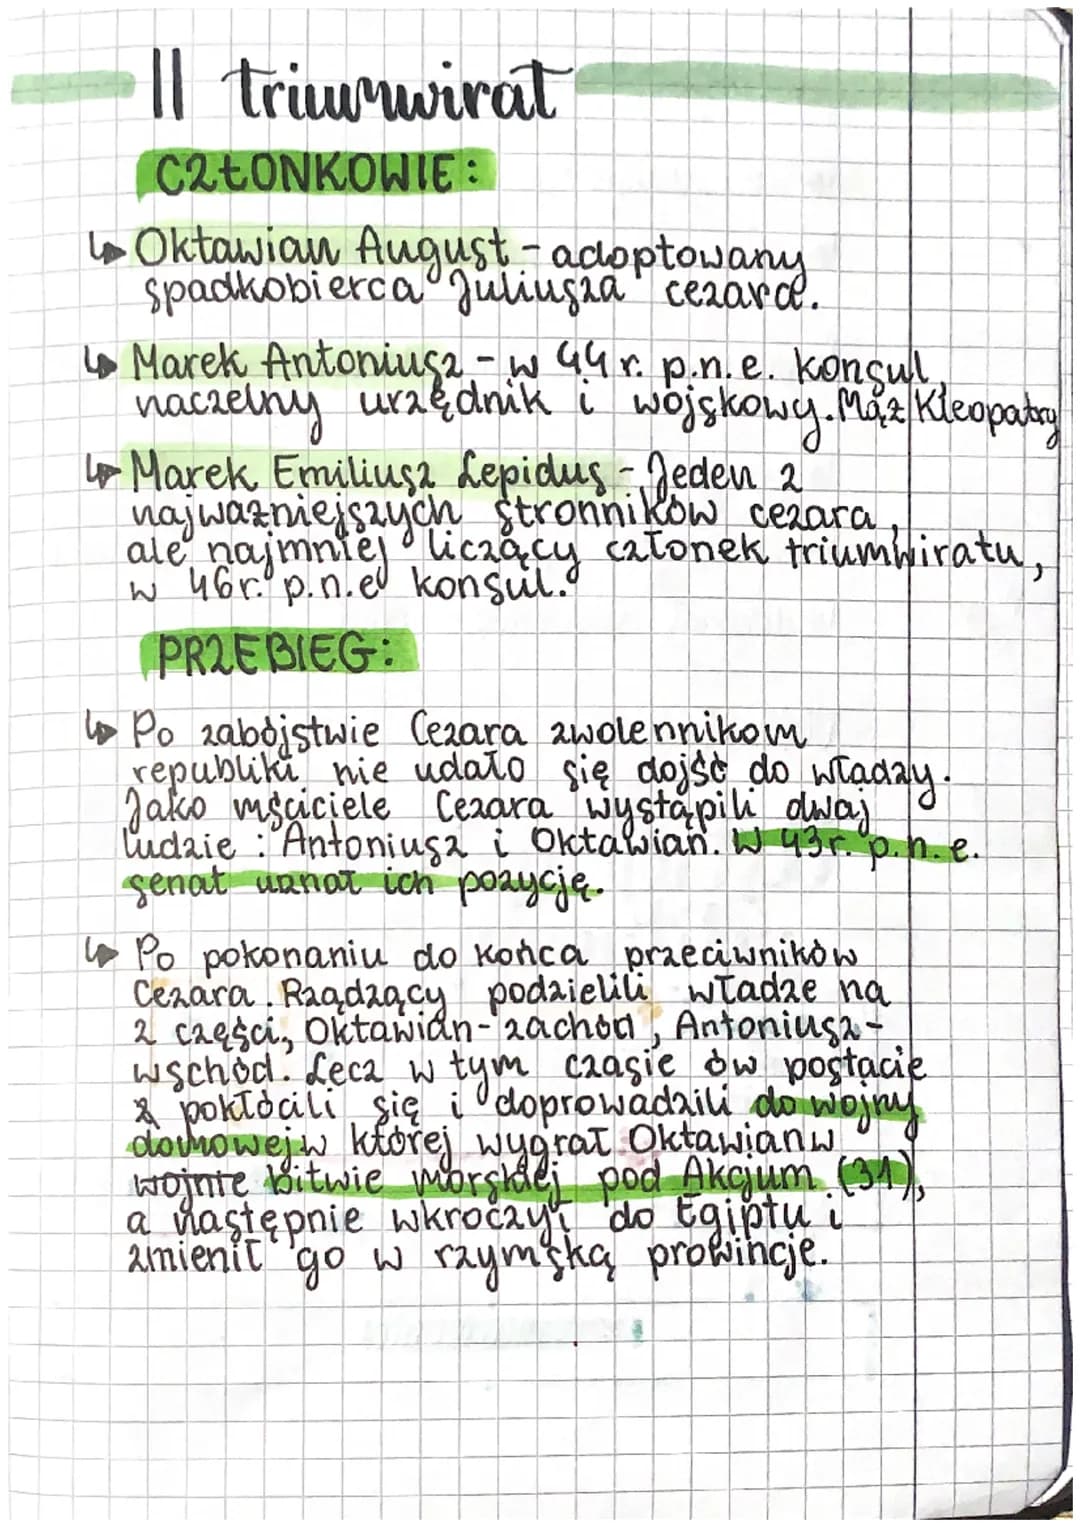 II triumwirat
CZŁONKOWIE:
↳ Oktawian August - adoptowany
spadkobierca Juliusza cezara.
↳ Marek Antoniusz - w 44 r. p.n.e. konsul,
naczelny urzędnik i wojskowy. Mąż Kleopatry
↳ Marek Emiliusz Lepidus - Jeden z
najważniejszych stronników cezara,
ale najmniej liczący członek triumwiratu,
w 46r. p.n.e konsul.
PRZEBIEG:
↳ Po zabójstwie Cezara zwolennikom
republiki nie udało się dojść do władzy.
Jako mściciele Cezara wystąpili dwaj
ludzie : Antoniusz i Oktawian. W 43r. p.n.e.
senat uznał ich pozycję.
↳ Po pokonaniu do końca przeciwników
Cezara. Rządzący podzielili władze na
2 części, Oktawian- zachód, Antoniusz-
wschód. Lecz w tym czasie ów postacie
pokłócili się i doprowadzili do wojny
domowej w której wygrał Oktawian w
wojnie bitwie morskiej pod Akcjum (31),
a następnie wkroczył do Egiptu i
zmienił go w rzymską prowincje.